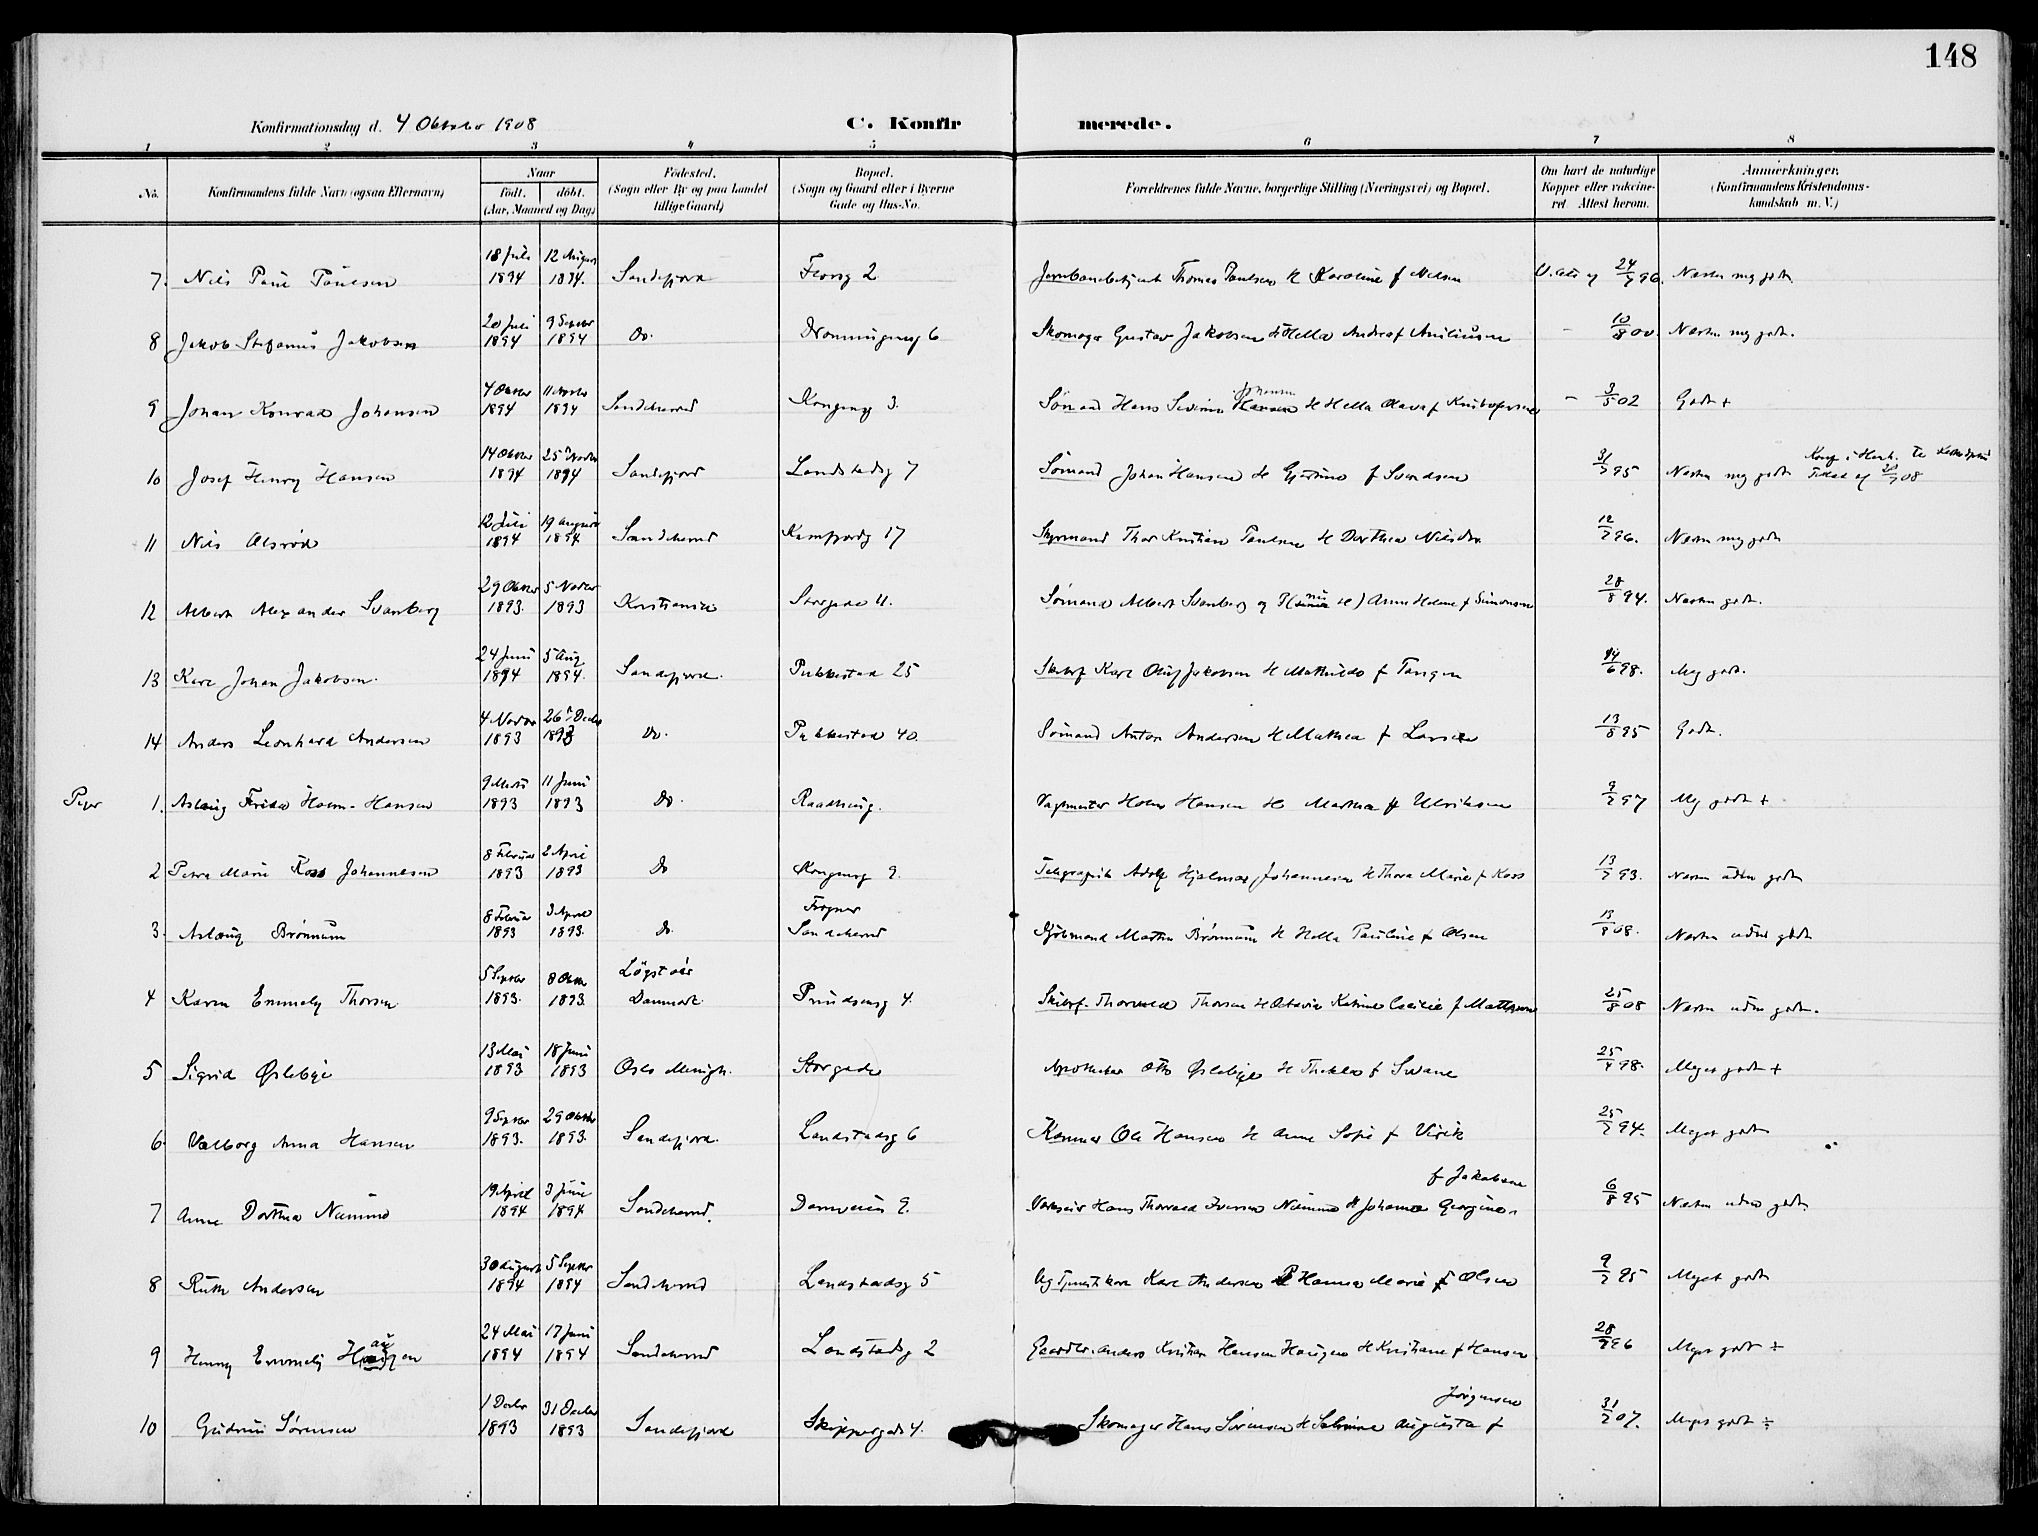 148
Konfirmationsdag d. 4 Oktober 1908
C. Konfirmerede.
1 2 3 4 5 6 7 8
No. Konfirmandens fulde Navn (ogsaa Efternavn) Naar født. døbt. (Aar, Maaned og Dag) Fødested. (Sogn eller By og paa Landet tillige Gaard) Bopæl. (Sogn og Gaard eller i Byerne Gade og Hus-No. Forældrenes fulde Navne, borgerlige Stilling (Næringsvei) og Bopæl. Om havt de naturlige Kopper eller vaccineret. Attest herom. Anmerkninger. (Konfirmandens Kristendomskundskab m. V.)
7. Nils Paul Paulsen 18 Juli 1894 12 August 1894. Sandefjord 2 Thomas Paulsen H Karoline f Nilsen 24/7 96. Næsten meg godt
8 Jakob Stefanus Jakobsen 20 Juli 1894 9 Septbr 1894 Do. Dronningensg 6 Skomager Gustav Jakobsen H Hella Andrea f - 10/8 00. Næsten meg godt.
9 Johan Konrad Johansen 4 Oktbr 1894 11 1894 Sandeherred Kongensg 3. Sømand Hans Severin Johansen H Hella Olava f Kristofersen - 3/5 02 Godt +
10 Josef Henry Hansen 14 Oktbr 1894 25 Novbr 1894 Sandefjord Landstadsg 7 Sømand Johan Hansen H f Svendsen 31/7 95 Næsten meg godt 08
11 Nils Olsrød 12 Juli 1894 19 August 1894 Sandeherred Kamfjordg 17 Styrmand Thor Kristian Paulsen H Dorthea Nilsdtr 12/7 96. Næsten meg godt
12 Albert Alexander Svanberg 29 Oktber 1893. 5 Novber 1893 Kristiania Storgade 11. Sømand Albert Svanberg og H) Anne Helene f Simonsen 28/8 94. Næsten godt.
13 Karl Johan Jakobsen. 24 Juni 1894 5 Aug 1894. Sandefjord. Pukkestad 25 Skibsf Karl Oluf Jakobsen H Mathilde f Tangen 14/6 98. Meg godt.
14 Anders Leonhard Andersen 4 Novbr 1893 26 Decbr 1893 Do. Pukkestad 40. Sømand Anton Andersen H Mathea f Larsen 13/8 95 Godt.
Piger 1. Aslaug Frida Holm-Hansen 9 1893 11 Juni 1893 Do. Raadhusg. Vagtmester Holm Hansen H Marthea f Ulriksen 9/7 97 Meg godt +
2 Petra Marie Koss Johannesen 8 Februar 1893 2 April 1893 Do Kongensg 9. Telegrafist Adolf Hjalmar Johannesen H Thora Marie f Koss 13/7 93. Næsten uden godt
3. Aslaug Brønnum 8 Februar 1893 3 April 1893. Do. Frogner Sandeherred Kjøbmand Martin Brønnum H Hella Pauline f Olsen 13/8 08. Næsten uden godt
4 Karen Emmely Thorsen 5 Septbr 1893. 8 Oktbr 1893. Løgstør Danmark Prindsensg 4. Skibsf. Thorvald Thorsen H Octavia Katrine Cecilie f 25/8 08 Næsten uden godt.
5 Sigrid Øslebye 13 Mai 1893 18 Juni 1893 Oslo Menigh. Storgade Apotheker Otto Øslebye H Thekla f Svane 25/4 98. Meget godt +
6. Valborg Anna Hansen 9 Septbr 1893. 29 Oktbr 1893. Sandefjord. Landstadsg 6 Ole Hansen H Anne Sofie f Virik 25/7 94. Meget godt
7 Anne Dorthea Namme 19 April 1894 3 Juni 1894 Sandeherred. 9. Hans Thorvald Iversen Namme H Johanne Georgine f Jakobsen 6/8 95 Næsten uden godt.
8 Ruth Andersen 30 August 1894 5 Septbr 1894 Sandeherred Landstadsg 5 Karl Andersen Hanna Marie f Olsen 9/7 95 Meget godt
9 Henny Emmely Haugen 24 Mai 1894 17 Juni 1894 Sandeherred Landstadsg 2 Anders Kristian Hansen Haugen H Kristiane f Hansen 28/7 96 Meget godt ÷
10 Gudrun Sørensen 1 Decbr 1893 31 Decbr 1893 Sandefjord Skippergade 4. Skomager Hans Sørensen H Augusta f Jørgensen 31/7 07. Meget godt ÷